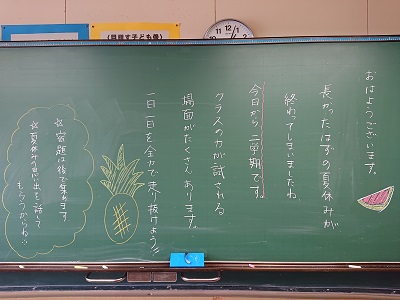 おはようございます。
長かったはずの夏休みが
終わってしまいましたね。
今日から二学期です。
クラスの力が試される
場面がたくさんあります。
一日一日を全力で走り抜けよう!!
☆宿題は後で集めます
☆夏休みの思い出を話して
もらうからね
(目指す子ども像)